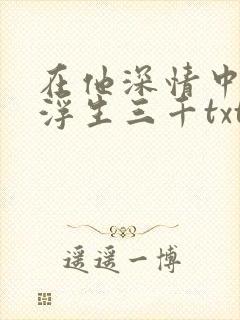 在他深情中
浮生三千txt
遥遥一博